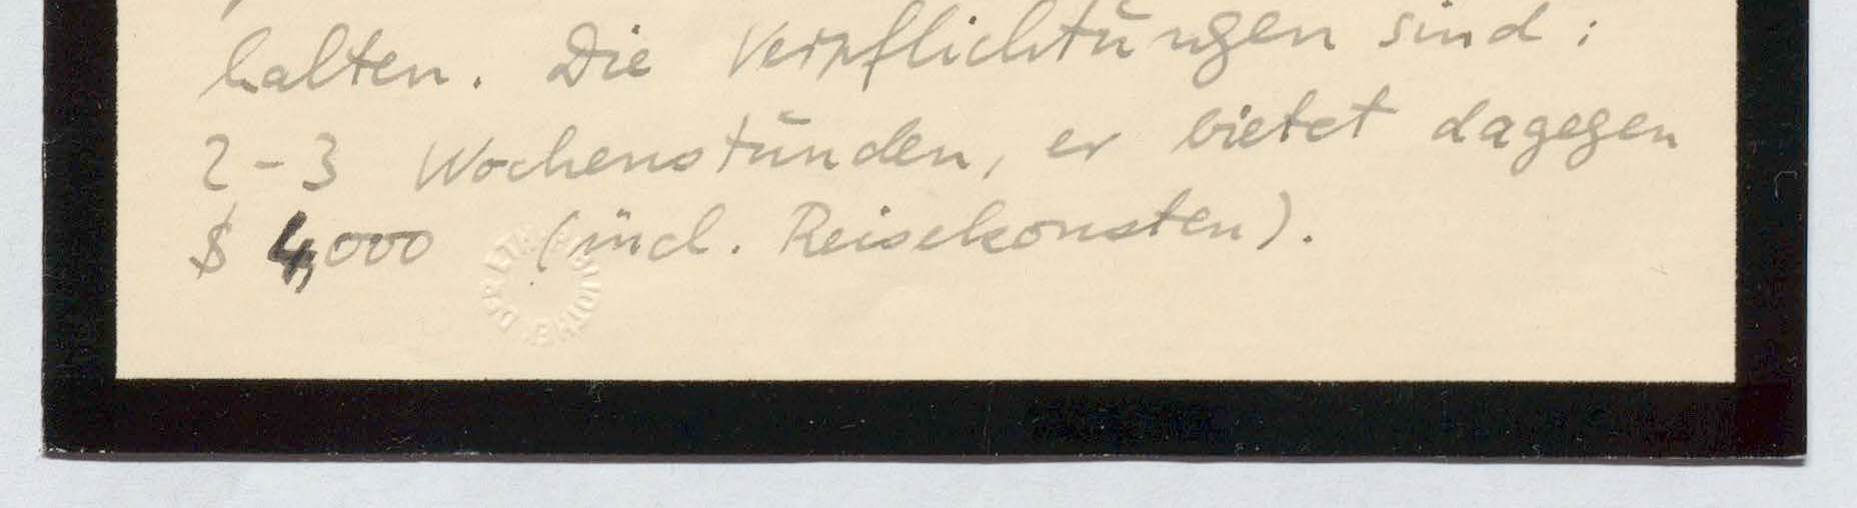 halten. Die Verpflichtungen sind:
2-3 Wochenstunden, er bietet dagegen
$ 4,000 (incl. Reisekonsten).